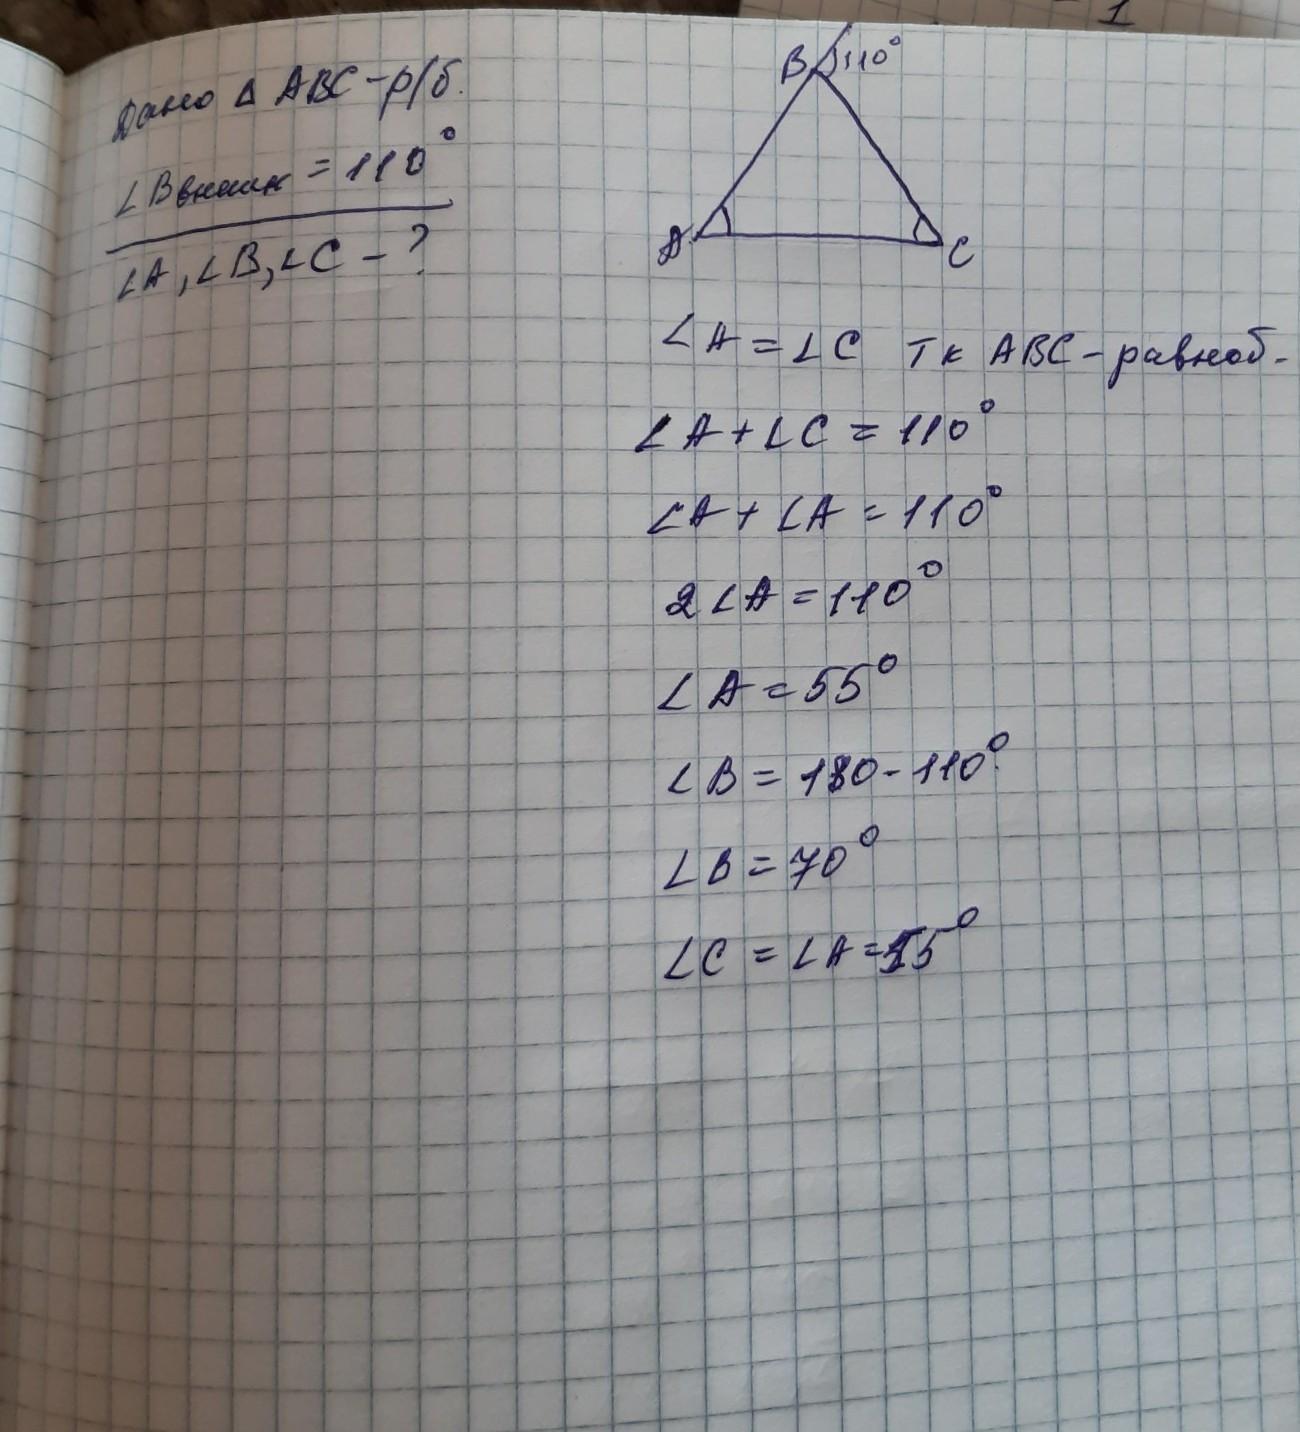 1
Дано Δ ABC-р/б.
∠Bвнешн = 110°
∠A, ∠B, ∠C - ?
B 110°
A C
∠A = ∠C тк ABC - равноб-
∠A + ∠C = 110°
∠A + ∠A = 110°
2∠A = 110°
∠A = 55°
∠B = 180 - 110°
∠B = 70°
∠C = ∠A = 55°